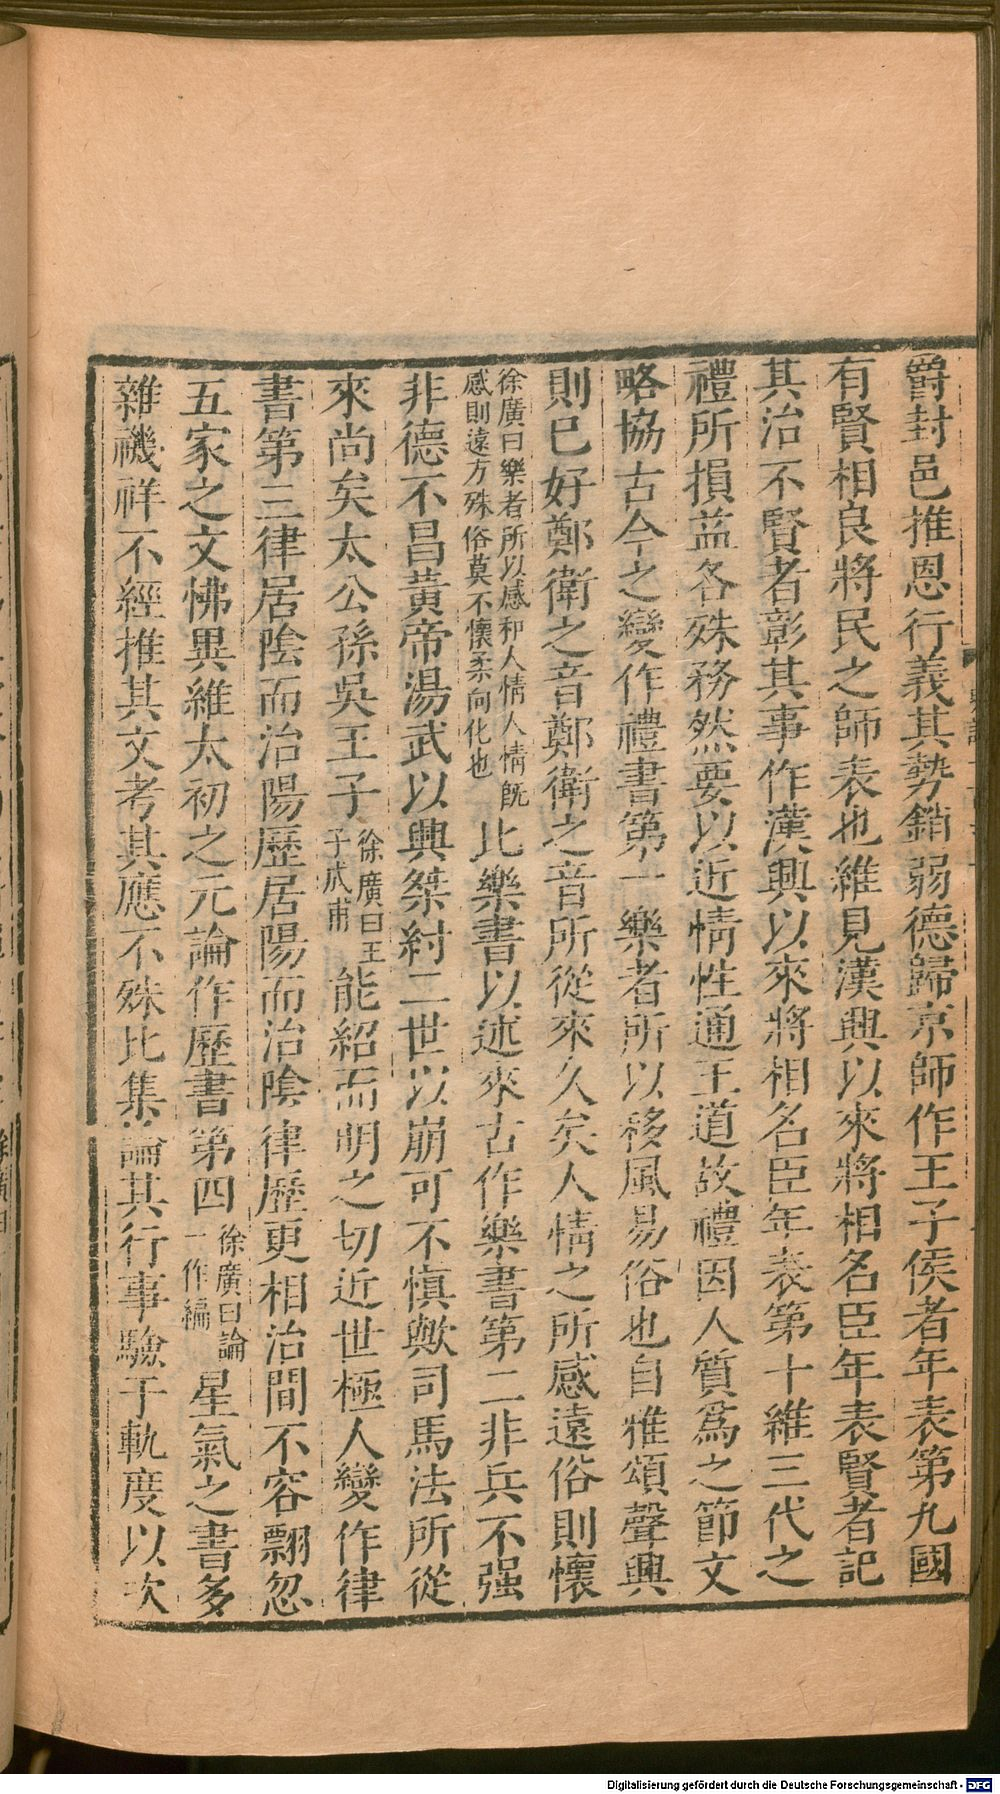 爵封邑推恩行義其勢銷弱德歸京師作王子侯者年表第九國
有賢相良將民之師表也維見漢興以來將相名臣年表賢者記
其治不賢者彰其事作漢興以來將相名臣年表第十維三代之
禮所損益各殊務然要以近情性通王道故禮因人質爲之節文
略協古今之變作禮書第一樂者所以移風易俗也自雅頌聲興
則已好鄭衛之音鄭衛之音所從來久矣人情之所感遠俗則懷
徐廣曰樂者所以感和人情人情既
感則遠方殊俗莫不懷柔向化也
比樂書以述來古作樂書第二非兵不强
非德不昌黃帝湯武以興桀紂二世以崩可不慎歟司馬法所從
來尚矣太公孫吳王子
徐廣曰王
子成甫
能紹而明之切近世極人變作律
書第三律居陰而治陽歷居陽而治陰律歷更相治間不容翲忽
五家之文怫異維太初之元論作歷書第四
徐廣曰論
一作編
星氣之書多
雜禨祥不經推其文考其應不殊比集論其行事驗于軌度以次
Digitalisierung gefördert durch die Deutsche Forschungsgemeinschaft - DFG